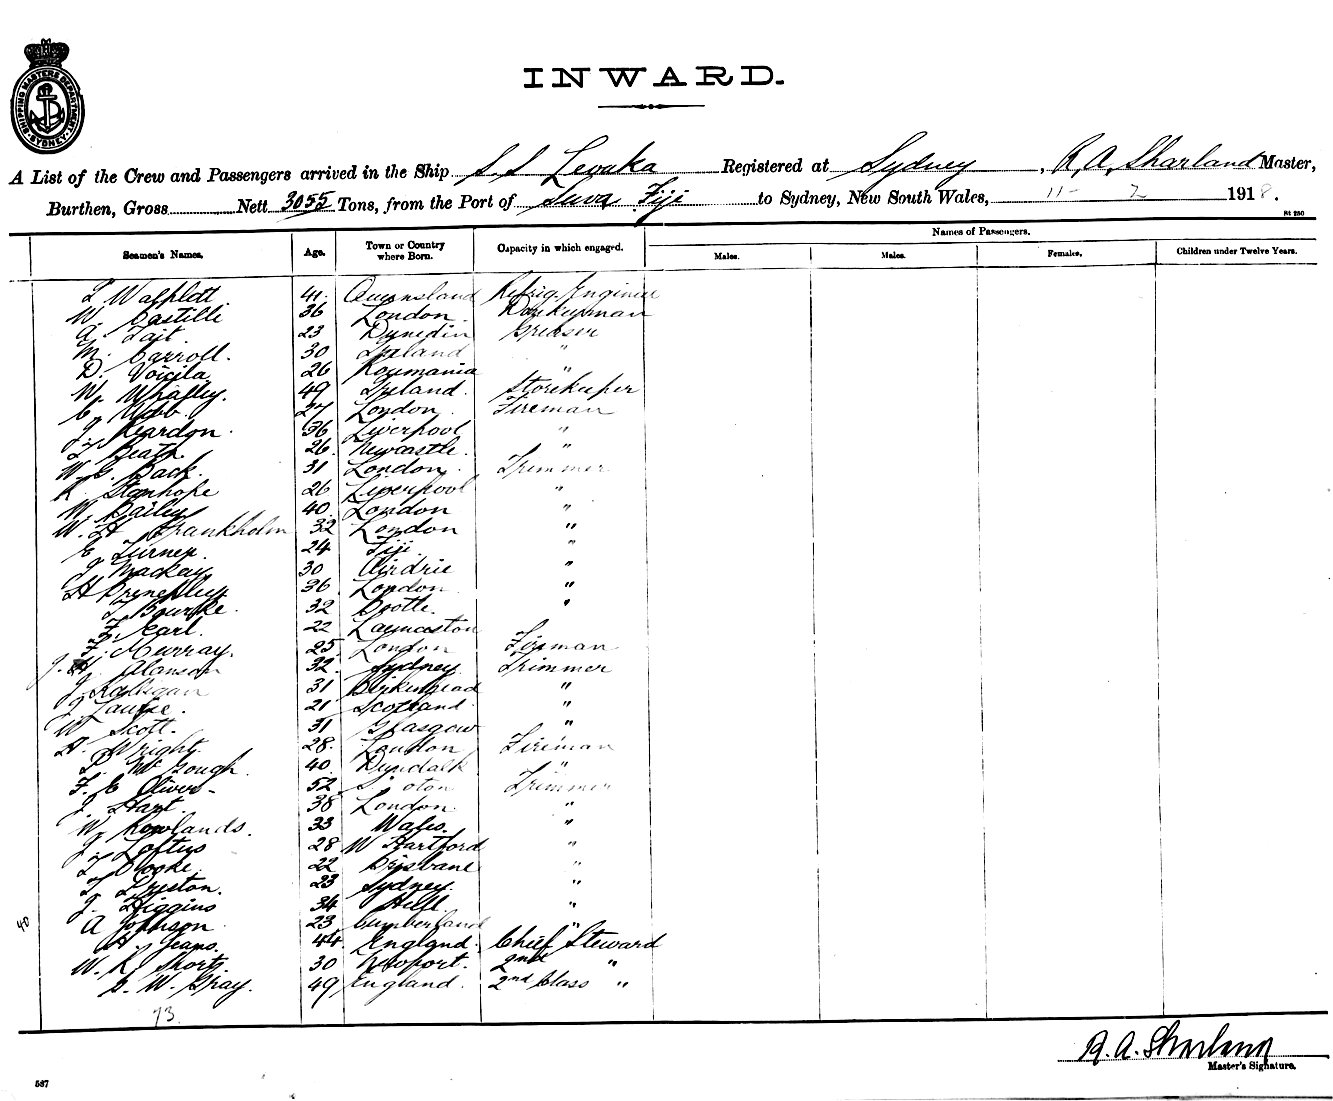 SHIPPING MASTERS DEPARTMENT SYDNEY
INWARD.
A List of the Crew and Passengers arrived in the Ship S.S Levuka Registered at Sydney, R. A. Sharland Master,
Burthen, Gross Nett 3055 Tons, from the Port of Suva Fiji to Sydney, New South Wales, 11- 2 1918.
St 230
Names of Passengers.
Seamen's Names. Age. Town or Country where Born. Capacity in which engaged. Males. Males. Females. Children under Twelve Years.
41. Queensland Refrig. Engineer
W. Castille 36 London Donkeyman
A. Tait. 23 Dunedin Greaser
M. Carroll. 30 Ireland "
D. Voicila 26 Roumania "
W. Whalley. 49 Ireland. Storekeeper
C. Webb 27 London Fireman
J. Reardon. 36 Liverpool "
T. Heath 26. Newcastle. "
W. C. Back. 31 London. Trimmer
K. Stanhope 26 Liverpool "
W. Bailey 40. London "
W. H. Frankholm 32 London "
E. Turner. 24 Fiji "
J. Mackay 30 Airdrie "
H 36. London "
T. Bourke. 32 Bootle. "
F. Kearl. 22 Launceston
F. Murray. 25 London Fireman
J. H. Alanson 32. Sydney. Trimmer
J. 31 Birkenhead "
J. Laurie. 21 Scotland. "
W Scott. 31 Glasgow "
A. Wright. 28. London Fireman
P. McGough. 40. Dundalk "
F. C. Oliver- 52 Trimmer
J. Hart. 38 London. "
W. Rowlands. 33 Wales. "
J. Loftus 28 W Hartford "
T. 22 Brisbane "
T. Preston. 23 Sydney. "
J. Higgins 34 Hull. "
40 A Johnson 23 Cumberland "
H. Jeans. 44. England. Chief Steward
W. R. Short. 30 Newport. 2nd "
S. W. Gray. 49 England. 2nd Class "
73.
R. A. Sharland
Master's Signature.
537